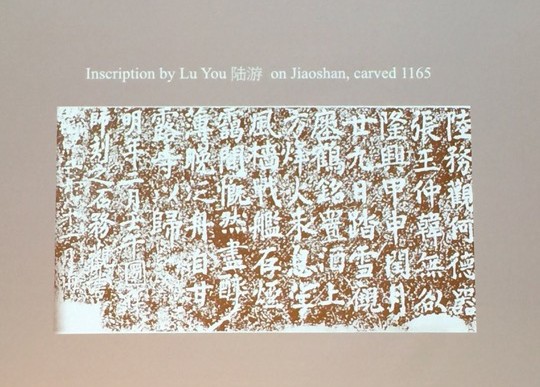 Inscription by Lu You 陆游 on Jiaoshan, carved 1165
陸務觀何德器
張玉仲韓無咎
隆興甲申閏月
廿九日踏雪觀
瘞鶴銘置酒上
方烽火未息望
風檣戰艦在煙
靄間慨然盡醉
薄晚泛舟自甘
露寺以歸
明年二月壬午圜
師刻之石務觀